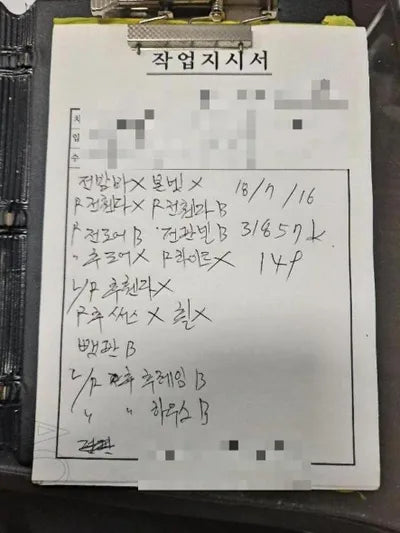 작업지시서
차
입
수
전밤바 X 본넷 X 18/7/16
R 전휀다 X R 전휀다 B
R 전도어 B 전판넬 B 31857k
〃 후도어 X R 라이트 X 149
L/R 후휀다 X
R 후 씨스 X 휠 X
빽판 B
L/R 후 후레임 B
〃 〃 하우스 B